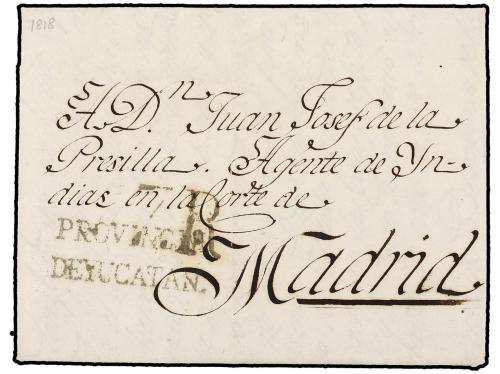 1818
A Dn. Juan Josef de la
Presilla. Agente de Yn-
dias en la Corte de
Madrid
PROVINCIA
DE YUCATAN.